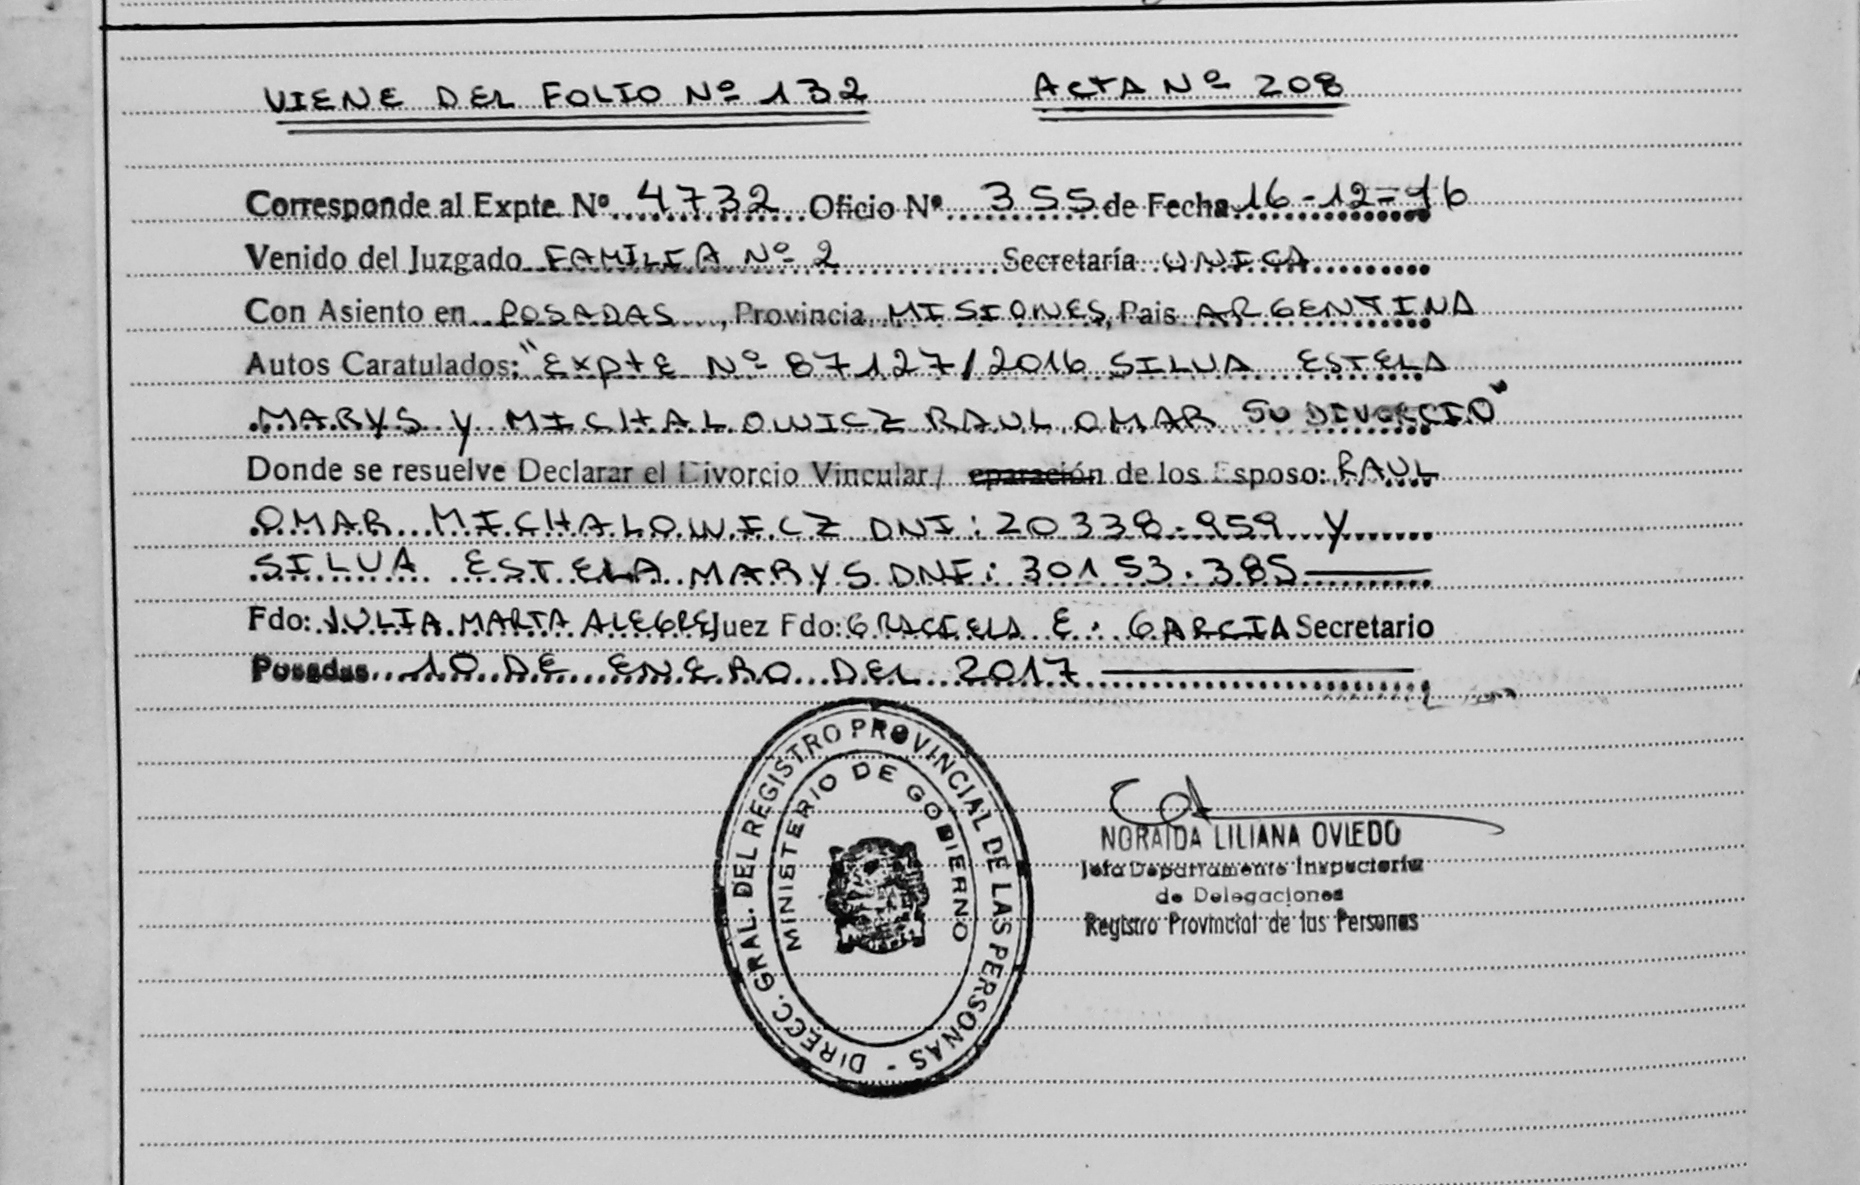 VIENE DEL FOLIO Nº 132 ACTA Nº 208
Corresponde al Expte Nº 4732 Oficio Nº 355 de Fecha 16-12-16
Venido del Juzgado FAMILIA Nº 2 Secretaría UNICA
Con Asiento en POSADAS, Provincia MISIONES, Pais ARGENTINA
Autos Caratulados: "Expte Nº 87127/2016 SILVA ESTELA
MARYS y MICHALOWICZ RAUL OMAR SU DIVORCIO"
Donde se resuelve Declarar el Divorcio Vincular/ eparación de los Esposo: RAUL
OMAR MICHALOWICZ DNI: 20338.959 y
SILVA ESTELA MARYS DNI: 30153.385
Fdo: JULIA MARTA ALEGRE Juez Fdo: GRACIELA E. GARCIA Secretario
Posadas 10 DE ENERO DEL 2017
DIRECC. GRAL. DEL REGISTRO PROVINCIAL DE LAS PERSONAS -
MINISTERIO DE GOBIERNO
NORAIDA LILIANA OVIEDO
Jefa Departamento Inspectoria
de Delegaciones
Registro Provincial de las Personas